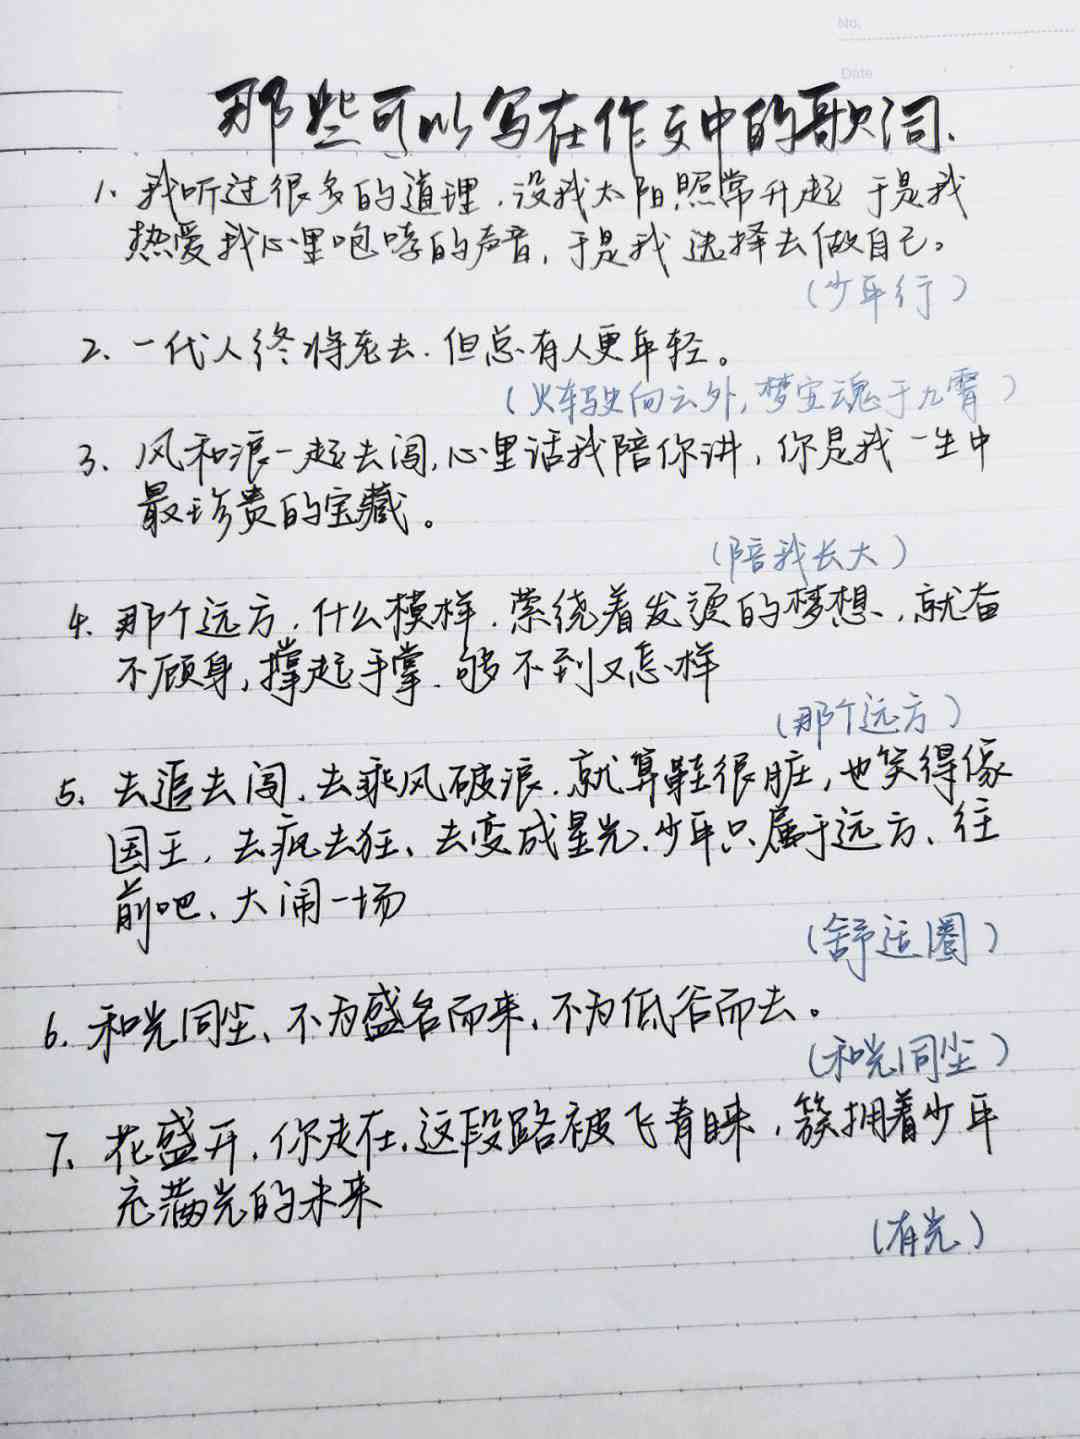 No.
Date
那些可以写在作文中的歌词、
1、我听过很多的道理、没我太阳照常升起 于是我
热爱我心里咆哮的声音,于是我选择去做自己。
(少年行)
2、一代人终将老去、但总有人更年轻。
(火车驶向云外,梦安魂于九霄)
3、风和浪一起去闯,心里话我陪你讲,你是我一生中
最珍贵的宝藏。
(陪我长大)
4、那个远方,什么模样、萦绕着发烫的梦想、就奋
不顾身,撑起手掌、够不到又怎样
(那个远方)
5、去追去闯、去乘风破浪、就算鞋很脏,也笑得像
国王,去疯去狂、去变成星光、少年只属于远方、往
前吧、大闹一场
(舒适圈)
6、和光同尘、不为盛名而来、不为低谷而去。
(和光同尘)
7、花盛开,你走在,这段路被飞青睐,簇拥着少年
充满光的未来
(有光)